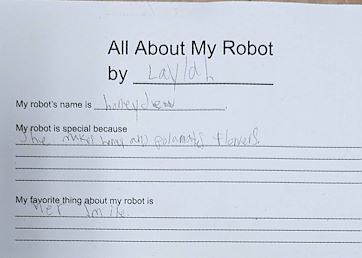 All About My Robot
by Laylah
My robot's name is honeydew.
My robot is special because
She makes honey and polanats flowers.
My favorite thing about my robot is
Her Smile.